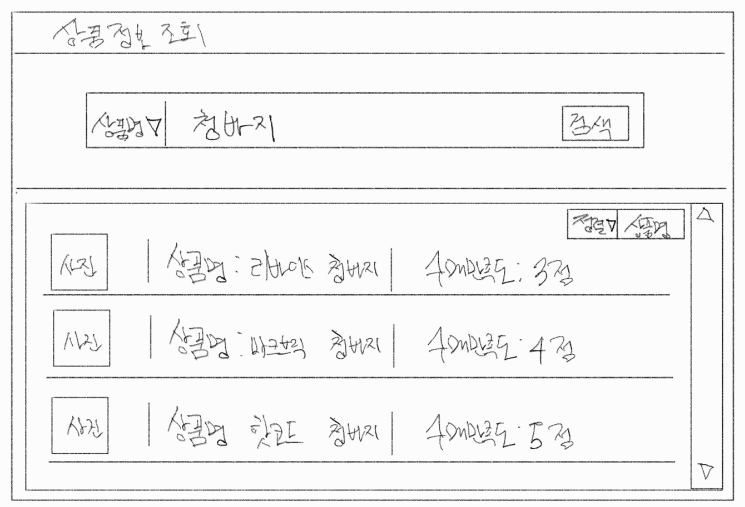 상품정보 조회
상품명▽ 청바지 검색
정렬▽ 상품명
사진 상품명: 리바이스 청바지 구매만족도: 3점
사진 상품명: 마크브릭 청바지 구매만족도: 4점
사진 상품명 핫코드 청바지 구매만족도: 5점